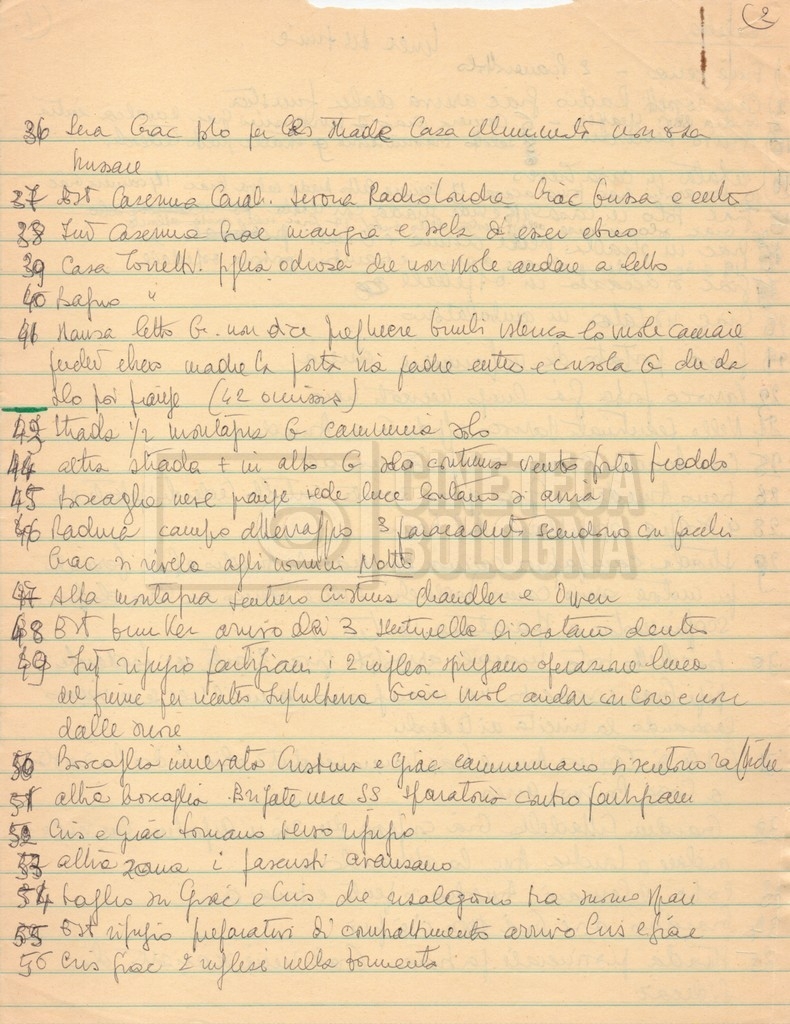 2
36 Sera Giac solo per strade Casa illuminata non osa
bussare
37 Est Caserma Carab. suona Radio Londra Giac bussa e entra
38 Int Caserma Giac mangia e rivela di esser ebreo
39 Casa figlia odiosa che non vuole andare a letto
40 Bagno "
41 Stanza letto G. non dice preghiere bimba isterica lo vuole cacciare
perché ebreo madre la porta via padre entra e consola G che da
solo poi piange (42 omissis)
43 Strada 1/2 montagna G cammina solo
44 altra strada + in alto G solo continua vento forte freddo
45 Boscaglia neve piange vede luce lontano si avvia
46 Radura campo atterraggio 3 paracaduti scendono con pacchi
Giac si rivela agli uomini Notte
47 Alta montagna sentiero Cristina Chandler e Owen
48 Est bunker arrivo dei 3 sentinella li scortano dentro
49 Int rifugio partigiani i 2 inglesi spiegano operazione linea
del fiume per rientro Inghilterra Giac vuol andar con loro e non
dalle suore
50 Boscaglia innevata Cristina e Giac camminano si sentono raffiche
51 altra boscaglia. Brigate nere SS sparatoria contro partigiani
52 Cris e Giac tornano verso rifugio
53 altra zona i fascisti avanzano
54 taglio su Giac e Cris che risalgono tra spari
55 Est rifugio preparativi di combattimento arrivo Cris e Giac
56 Cris Giac 2 inglesi nella tormenta
CINETECA
BOLOGNA